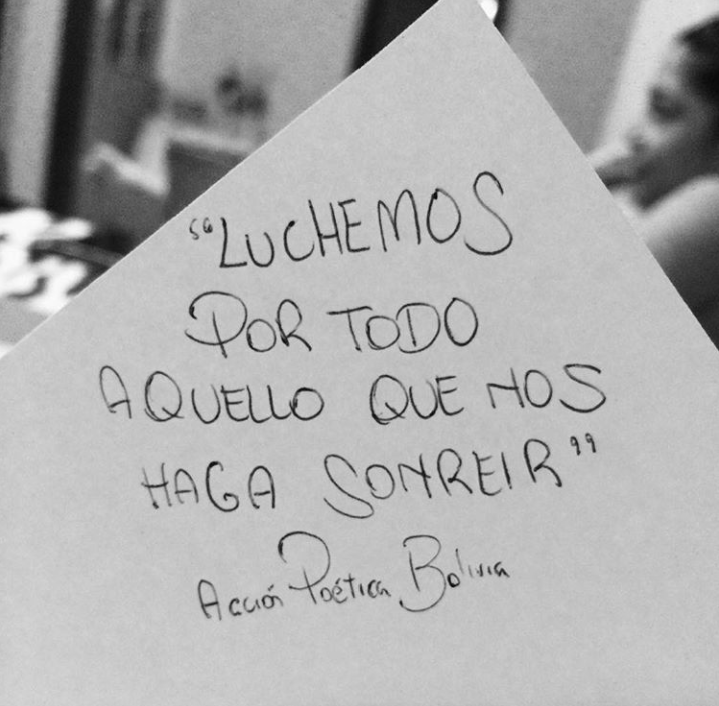 “LUCHEMOS
POR TODO
AQUELLO QUE NOS
HAGA SONREIR”
Acción Poética Bolivia